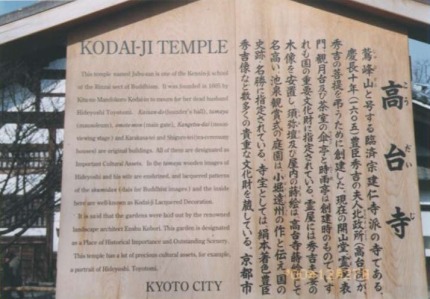 KODAI-JI TEMPLE
This temple named Jubu-san is one of the Kennin-ji school
of the Rinzai sect of Buddhism. It was founded in 1605 by
Kitano Mandokoro Kodai-in to mourn for her dead husband
Hideyoshi Toyotomi.
viewing stage) and Karakasa-tei and
houses) are original buildings. All of these are designated as
Important Cultural Assets. In the wooden images of
Hideyoshi and his wife are enshrined, and lacquered patterns
of the (for Buddhist images) and the inside
are well-known as Kodai-ji Lacquered Decoration.
It is said that the gardens were laid out by the renowned
landscape architect Enshu Kobori. This garden is designated
as a Place of Historical Importance and Outstanding Scenery.
This temple has a lot of precious cultural assets, for example,
a portrait of Hideyoshi Toyotomi.
KYOTO CITY
高台寺
こうだいじ
鷲峰山と号する臨済宗建仁寺派の寺である。
慶長十年(一六〇五)豊臣秀吉の夫人北政所(高台院)が
秀吉の菩提を弔うために創建した。現在の開山堂、霊屋、表
門、観月台及び茶室の傘亭と時雨亭は創建時のもので、いず
れも国の重要文化財に指定されている。霊屋には秀吉夫妻の
木像を安置し、須弥壇及び厨子の蒔絵は「高台寺蒔絵」として
名高い。池泉観賞式の庭園は小堀遠州の作と伝え、国の
史跡・名勝に指定されている。寺宝としては絹本着色豊臣
秀吉像など数多くの貴重な文化財を蔵している。
京都市